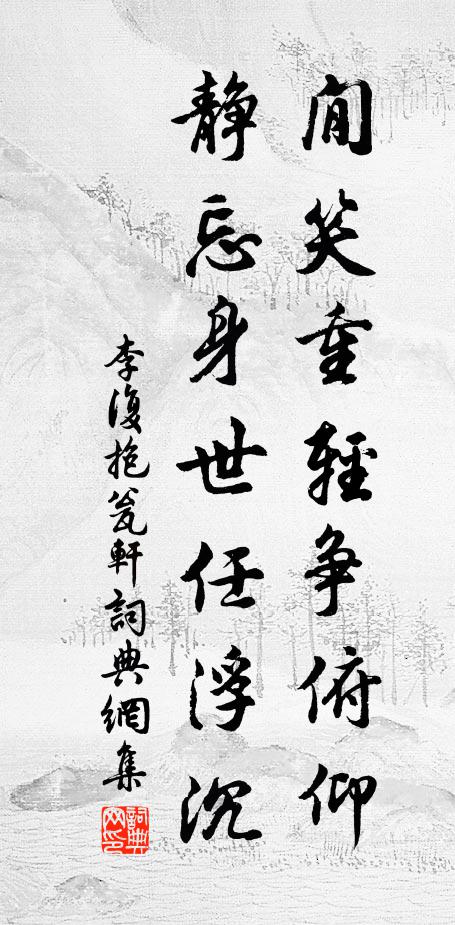 閒笑重輕爭俯仰
靜忘身世任浮沉
李復抱瓮軒詞典網集
詞典網印